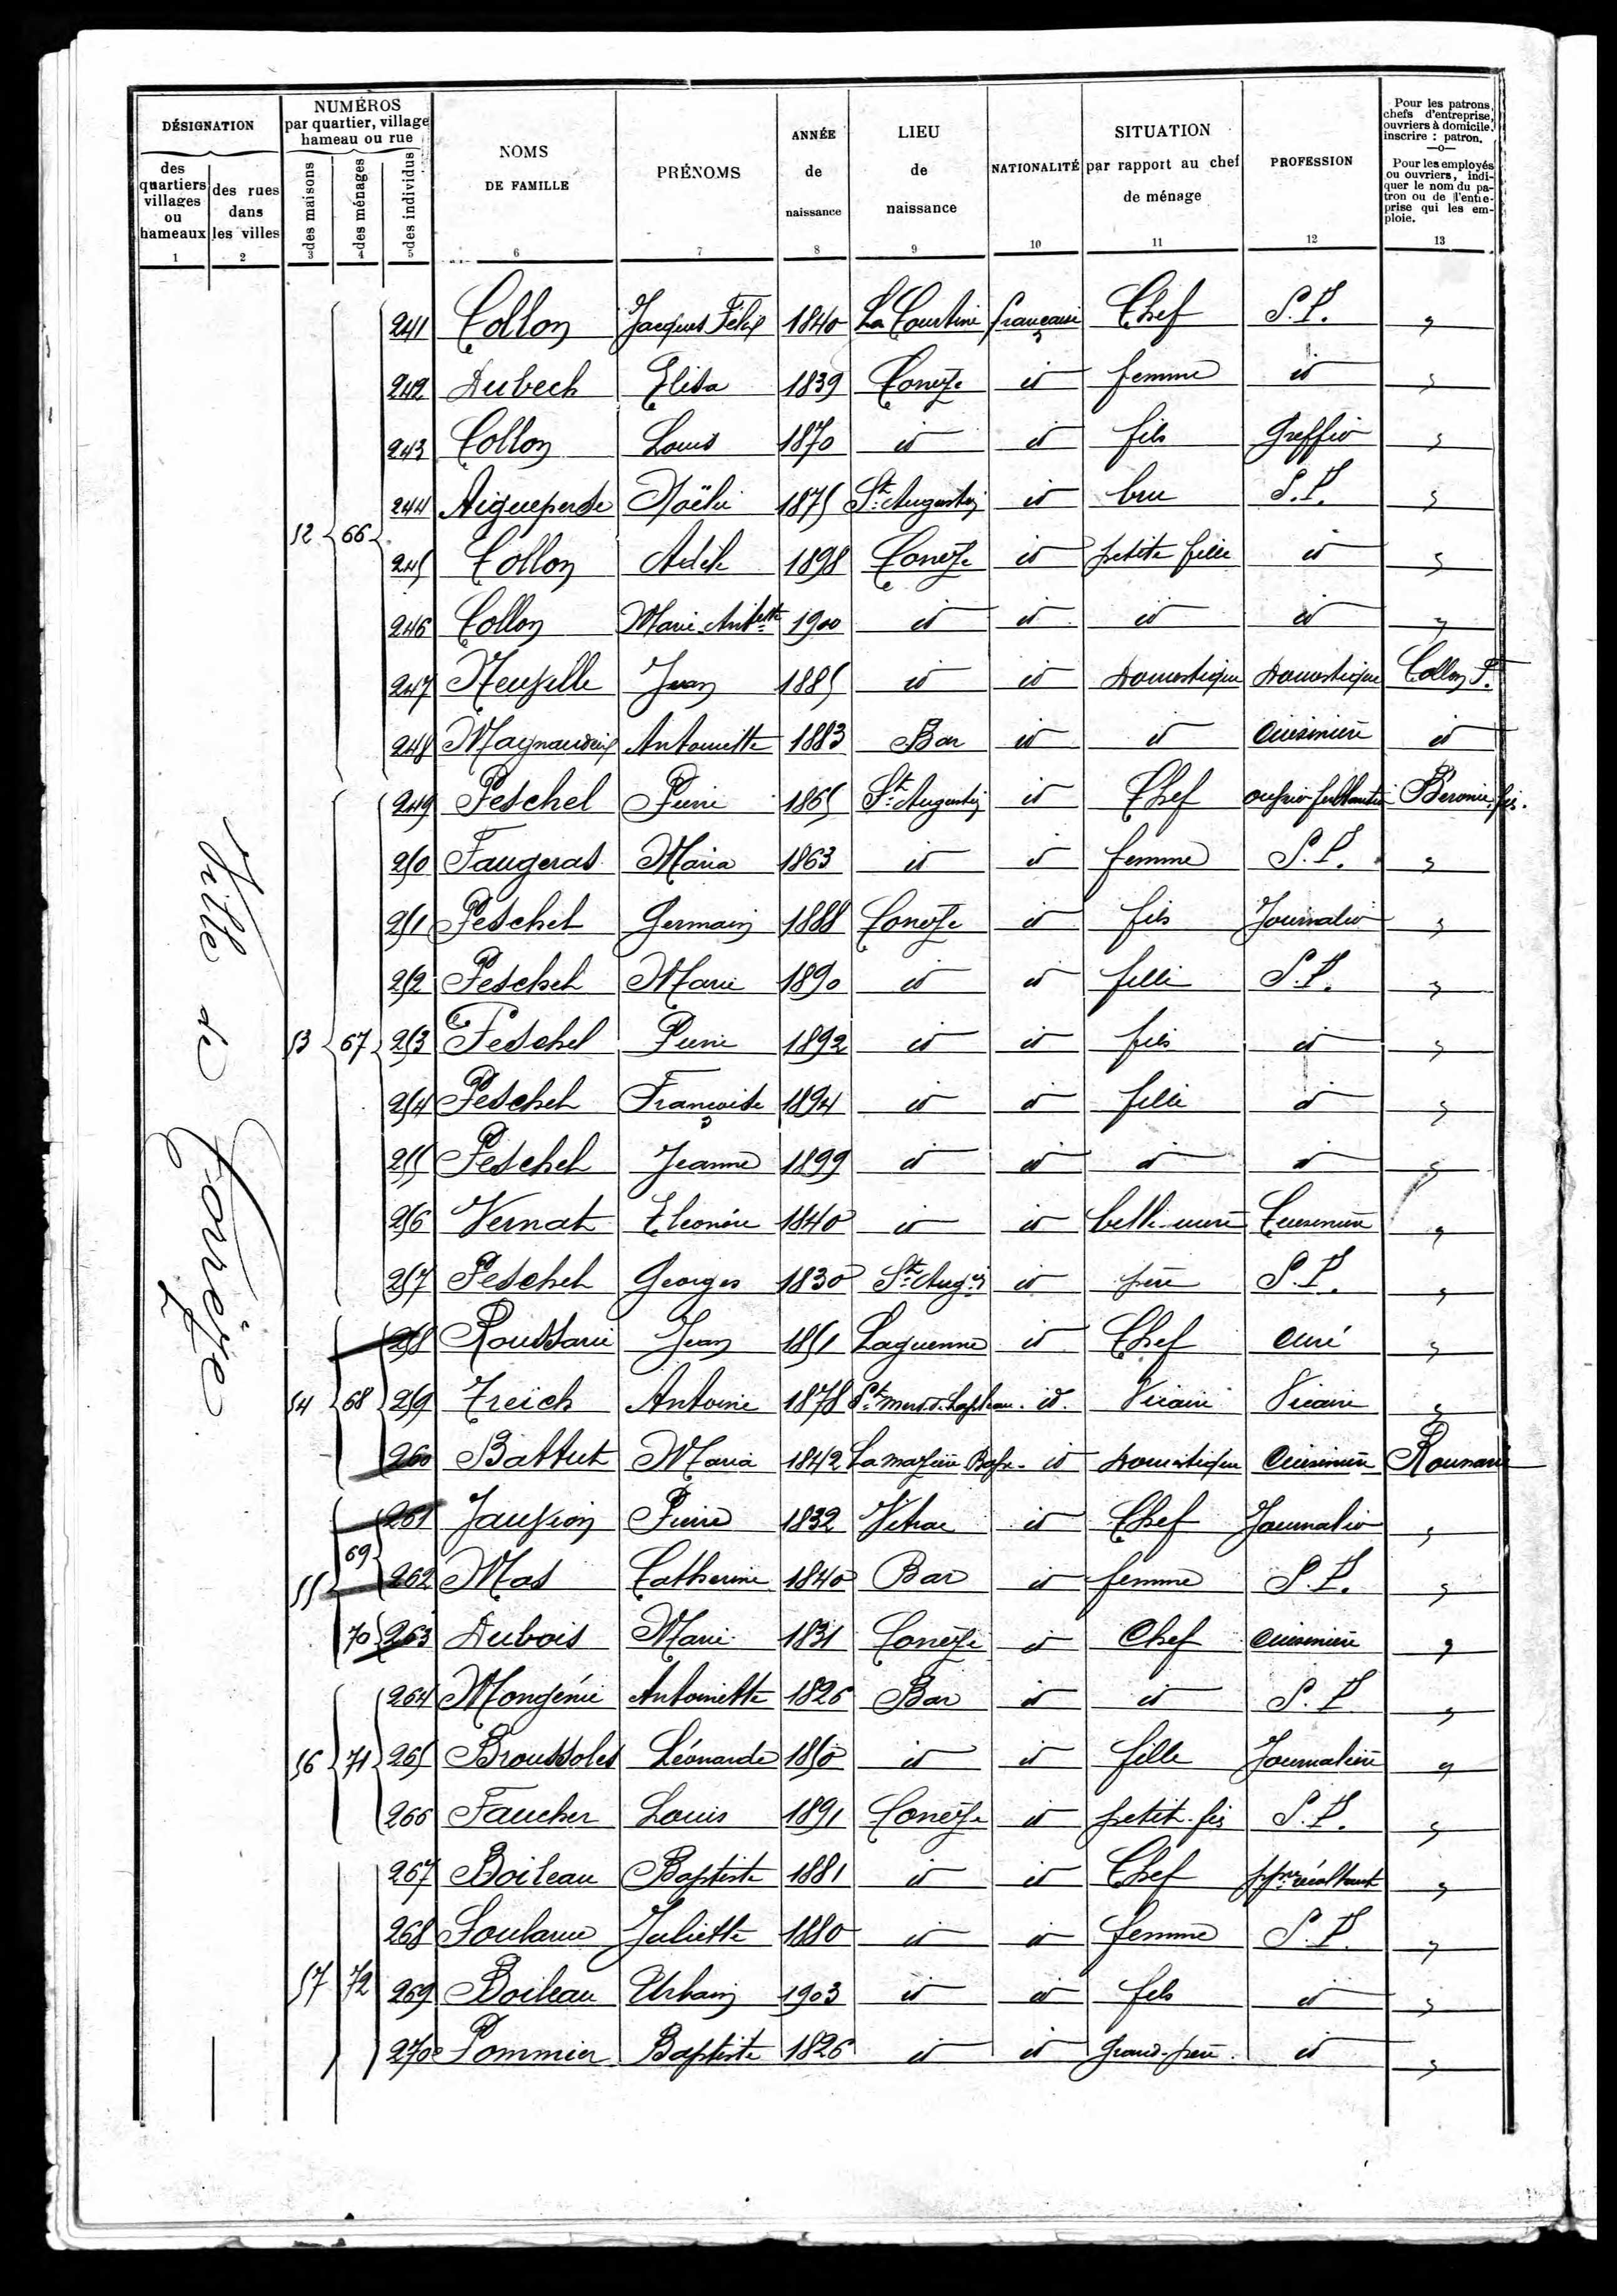 DÉSIGNATION
des quartiers villages ou hameaux
des rues dans les villes
NUMÉROS par quartier, village hameau ou rue
des maisons
des ménages
des individus
NOMS DE FAMILLE
PRÉNOMS
ANNÉE de naissance
LIEU de naissance
NATIONALITÉ
SITUATION par rapport au chef de ménage
PROFESSION
Pour les patrons, chefs d'entreprise, ouvriers à domicile, inscrire : patron.
—o—
Pour les employés ou ouvriers, indiquer le nom du patron ou de l'entreprise qui les emploie.
1 2 3 4 5 6 7 8 9 10 11 12 13
Ville de Corrèze
241 Collon Jacques Félix 1840 La Courtine française Chef S.P. "
242 Dubech Elisa 1839 Corrèze id femme id "
243 Collon Louis 1870 id id fils Greffier "
244 Aigueperse Noëlie 1875 St Augustin id bru S.P. "
52 66
245 Collon Adèle 1898 Corrèze id petite fille id "
246 Collon Marie Antette 1900 id id id id "
247 Neuville Jean 1885 id id domestique domestique Collon F.
248 Magnaudeix Antoinette 1883 Bar id id cuisinière id
249 Peschel Pierre 1865 St Augustin id Chef ouvrier ferblantier Beronie fis.
250 Faugeras Maria 1863 id id femme S.P. "
251 Peschel Germain 1888 Corrèze id fils Journalier "
252 Peschel Marie 1890 id id fille S.P. "
53 67 253 Peschel Pierre 1892 id id fils id "
254 Peschel Françoise 1894 id id fille id "
255 Peschel Jeanne 1899 id id id id "
256 Vernat Eléonore 1840 id id belle-mère Cuisinière "
257 Peschel Georges 1830 St Augn id père S.P. "
258 Roussarie Jean 1851 Laguenne id Chef curé "
54 68 259 Treich Antoine 1878 St merd. de Lapleau id. Vicaire Vicaire "
260 Battut Maria 1842 La mazière Basse id domestique cuisinière Roussarie
261 Jauvion Pierre 1832 Vitrac id Chef Journalier "
55 69 262 Mas Catherine 1840 Bar id femme S.P. "
70 263 Dubois Marie 1831 Corrèze id Chef cuisinière "
264 Mongénie Antoinette 1826 Bar id id S.P. "
56 71 265 Broussoles Léonarde 1850 id id fille Journalière "
266 Faucher Louis 1891 Corrèze id petit-fis S.P. "
267 Boileau Baptiste 1881 id id Chef "
268 Soularue Juliette 1880 id id femme S.P. "
57 72 269 Boileau Urbain 1903 id id fils id "
270 Pommier Baptiste 1826 id id grand-père id "